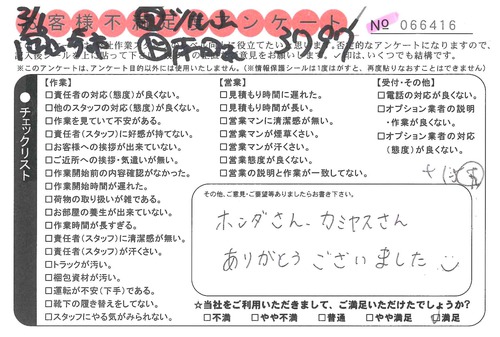 お客様不満足度アンケート
No 066416
3/1
立てたいと思います。否定的なアンケートになりますので、
※このアンケートは、アンケート目的以外には使用いたしません。(※情報保護シールは1度はがすと、再度貼りなおすことはできません)
チェックリスト
【作業】
□責任者の対応(態度)が良くない。
□他のスタッフの対応(態度)が良くない。
□作業を見ていて不安がある。
□責任者(スタッフ)に好感が持てない。
□お客様への挨拶が出来ていない。
□ご近所への挨拶・気遣いが無い。
□作業開始前の内容確認がなかった。
□作業開始時間が遅れた。
□荷物の取り扱いが雑である。
□お部屋の養生が出来ていない。
□作業時間が長すぎる。
□責任者(スタッフ)に清潔感が無い。
□責任者(スタッフ)が汗くさい。
□トラックが汚い。
□梱包資材が汚い。
□運転が不安(下手)である。
□靴下の履き替えをしてない。
□スタッフにやる気がみられない。
【営業】
□見積もり時間に遅れた。
□見積もり時間が長い。
□営業マンに清潔感が無い。
□営業マンが煙草くさい。
□営業マンが汗くさい。
□営業態度が良くない。
□営業の説明と作業が一致してない。
【受付・その他】
□電話の対応が良くない。
□オプション業者の説明
・作業が良くない。
□オプション業者の対応
(態度)が良くない。
その他、ご意見・ご要望等ありましたらお書き下さい。
ホンダさん、カミヤスさん
ありがとう ございました
☆当社をご利用いただきまして、ご満足いただけたでしょうか?
□不満 □やや不満 □普通 □やや満足 ☑満足